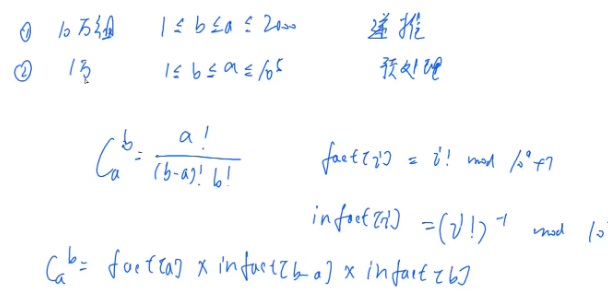 ① 10万组 1≤b≤a≤2000 递推
② 1万 1≤b≤a≤10⁵ 预处理
C_a^b = a! / (b-a)! b!
fact[i] = i! mod 10⁹+7
infact[i] = (i!)⁻¹ mod 10
C_a^b = fact[a] × infact[b-a] × infact[b]